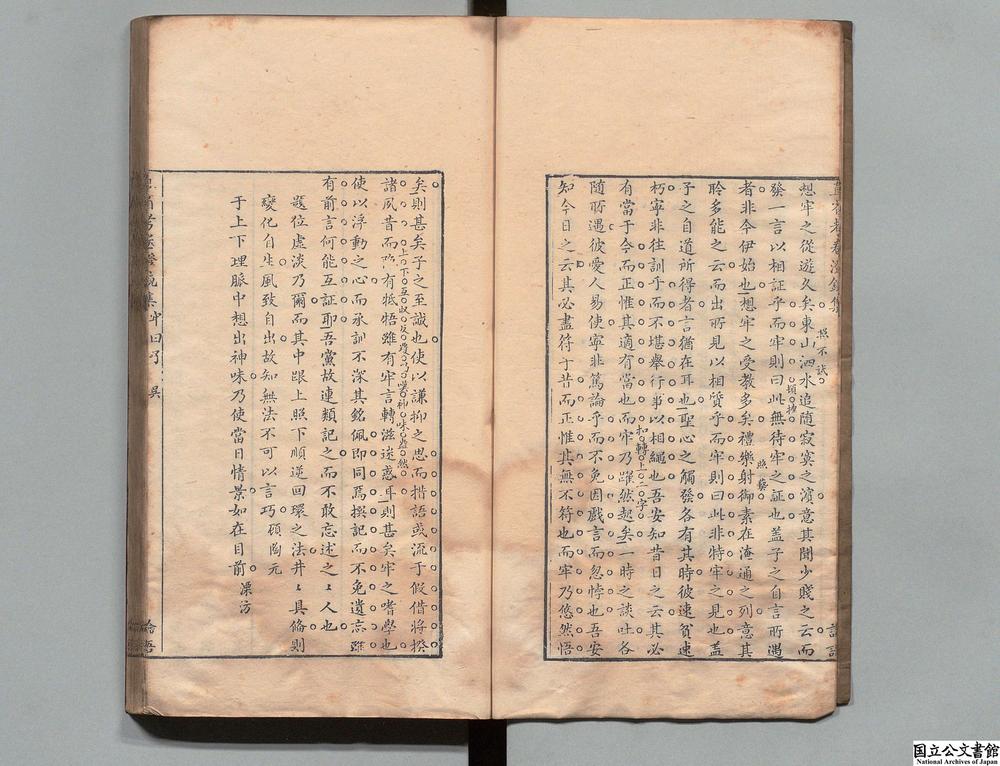 想牢之從遊久矣東山泗水追隨寂寞之濱意其聞少賤之云而
發一言以相証乎而牢則曰此無待牢之証也蓋子之自言所遇
者非今伊始也想牢之受教多矣禮樂射御素在淹通之列意其
聆多能之云而出所見以相質乎而牢則曰此非特牢之見也蓋
子之自道所得者言猶在耳也聖心之觸發各有其時彼速貧速
朽寧非往訓乎而不堪舉行事以相繩也吾安知昔日之云其必
有當于今而正惟其適有當也而牢乃躍然起矣一時之談吐各
隨所遇彼愛人易使寧非篤論乎而不免因戲言而忽悖也吾安
知今日之云其必盡符于昔而正惟其無不符也而牢乃悠然悟
矣則甚矣子之至誠也使以謙抑之思而措語或流于假借將撥
諸夙昔而有牴牾雖有牢言轉滋迷惑耳則甚矣牢之嗜學也
使以浮動之心而承訓不深其銘佩即同焉撰記而不免遺忘雖
有前言何能互証耶吾黨故連類記之而不敢忘述之之人也
題位虛淡乃爾而其中跟上照下順逆回環之法井井具備則
變化自生風致自出故知無法不可以言巧碩陶元
于上下理脈中想出神味乃使當日情景如在目前 溧方
照不試
照藝
上下互映
国立公文書館
National Archives of Japan